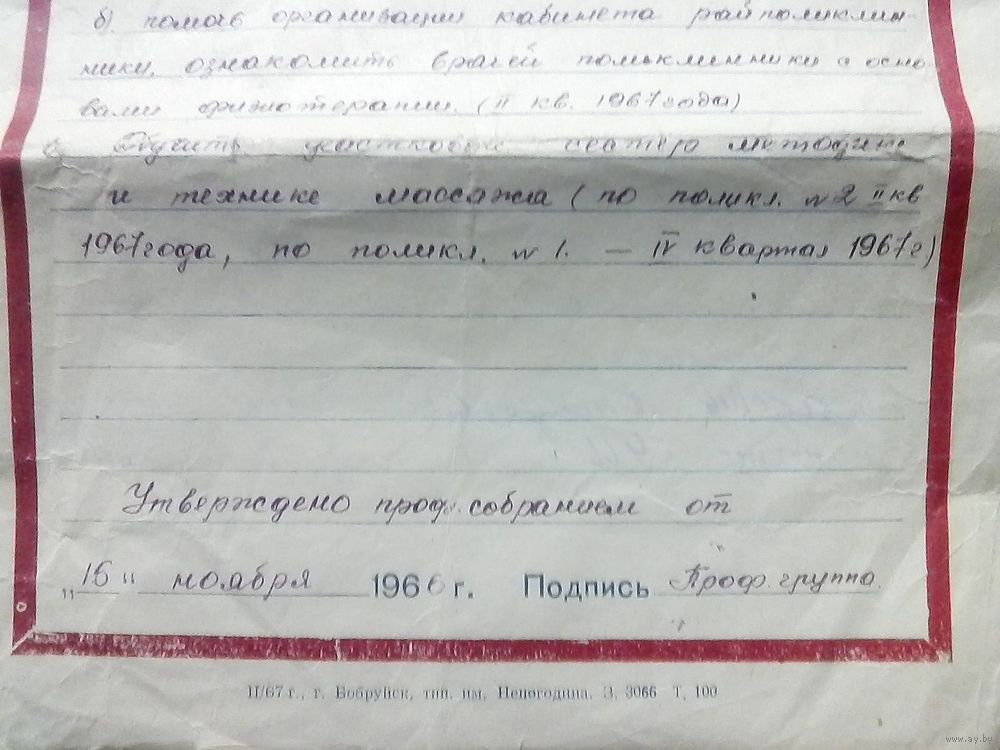 б) помочь организации кабинета райполиклин-
ники. ознакомить врачей поликлинники с осно-
вами физиотерапии. (II кв. 1967 года)
и технике массажа (по поликл. №2 II кв
1967 года, по поликл. №1. — IV квартал 1967 г)
Утверждено проф. собранием от
"16" ноября 1966 г. Подпись Проф. группа.
II/67 г., г. Бобруйск, тип. им. Непогодина. З. 3066 Т. 100
www.ay.by